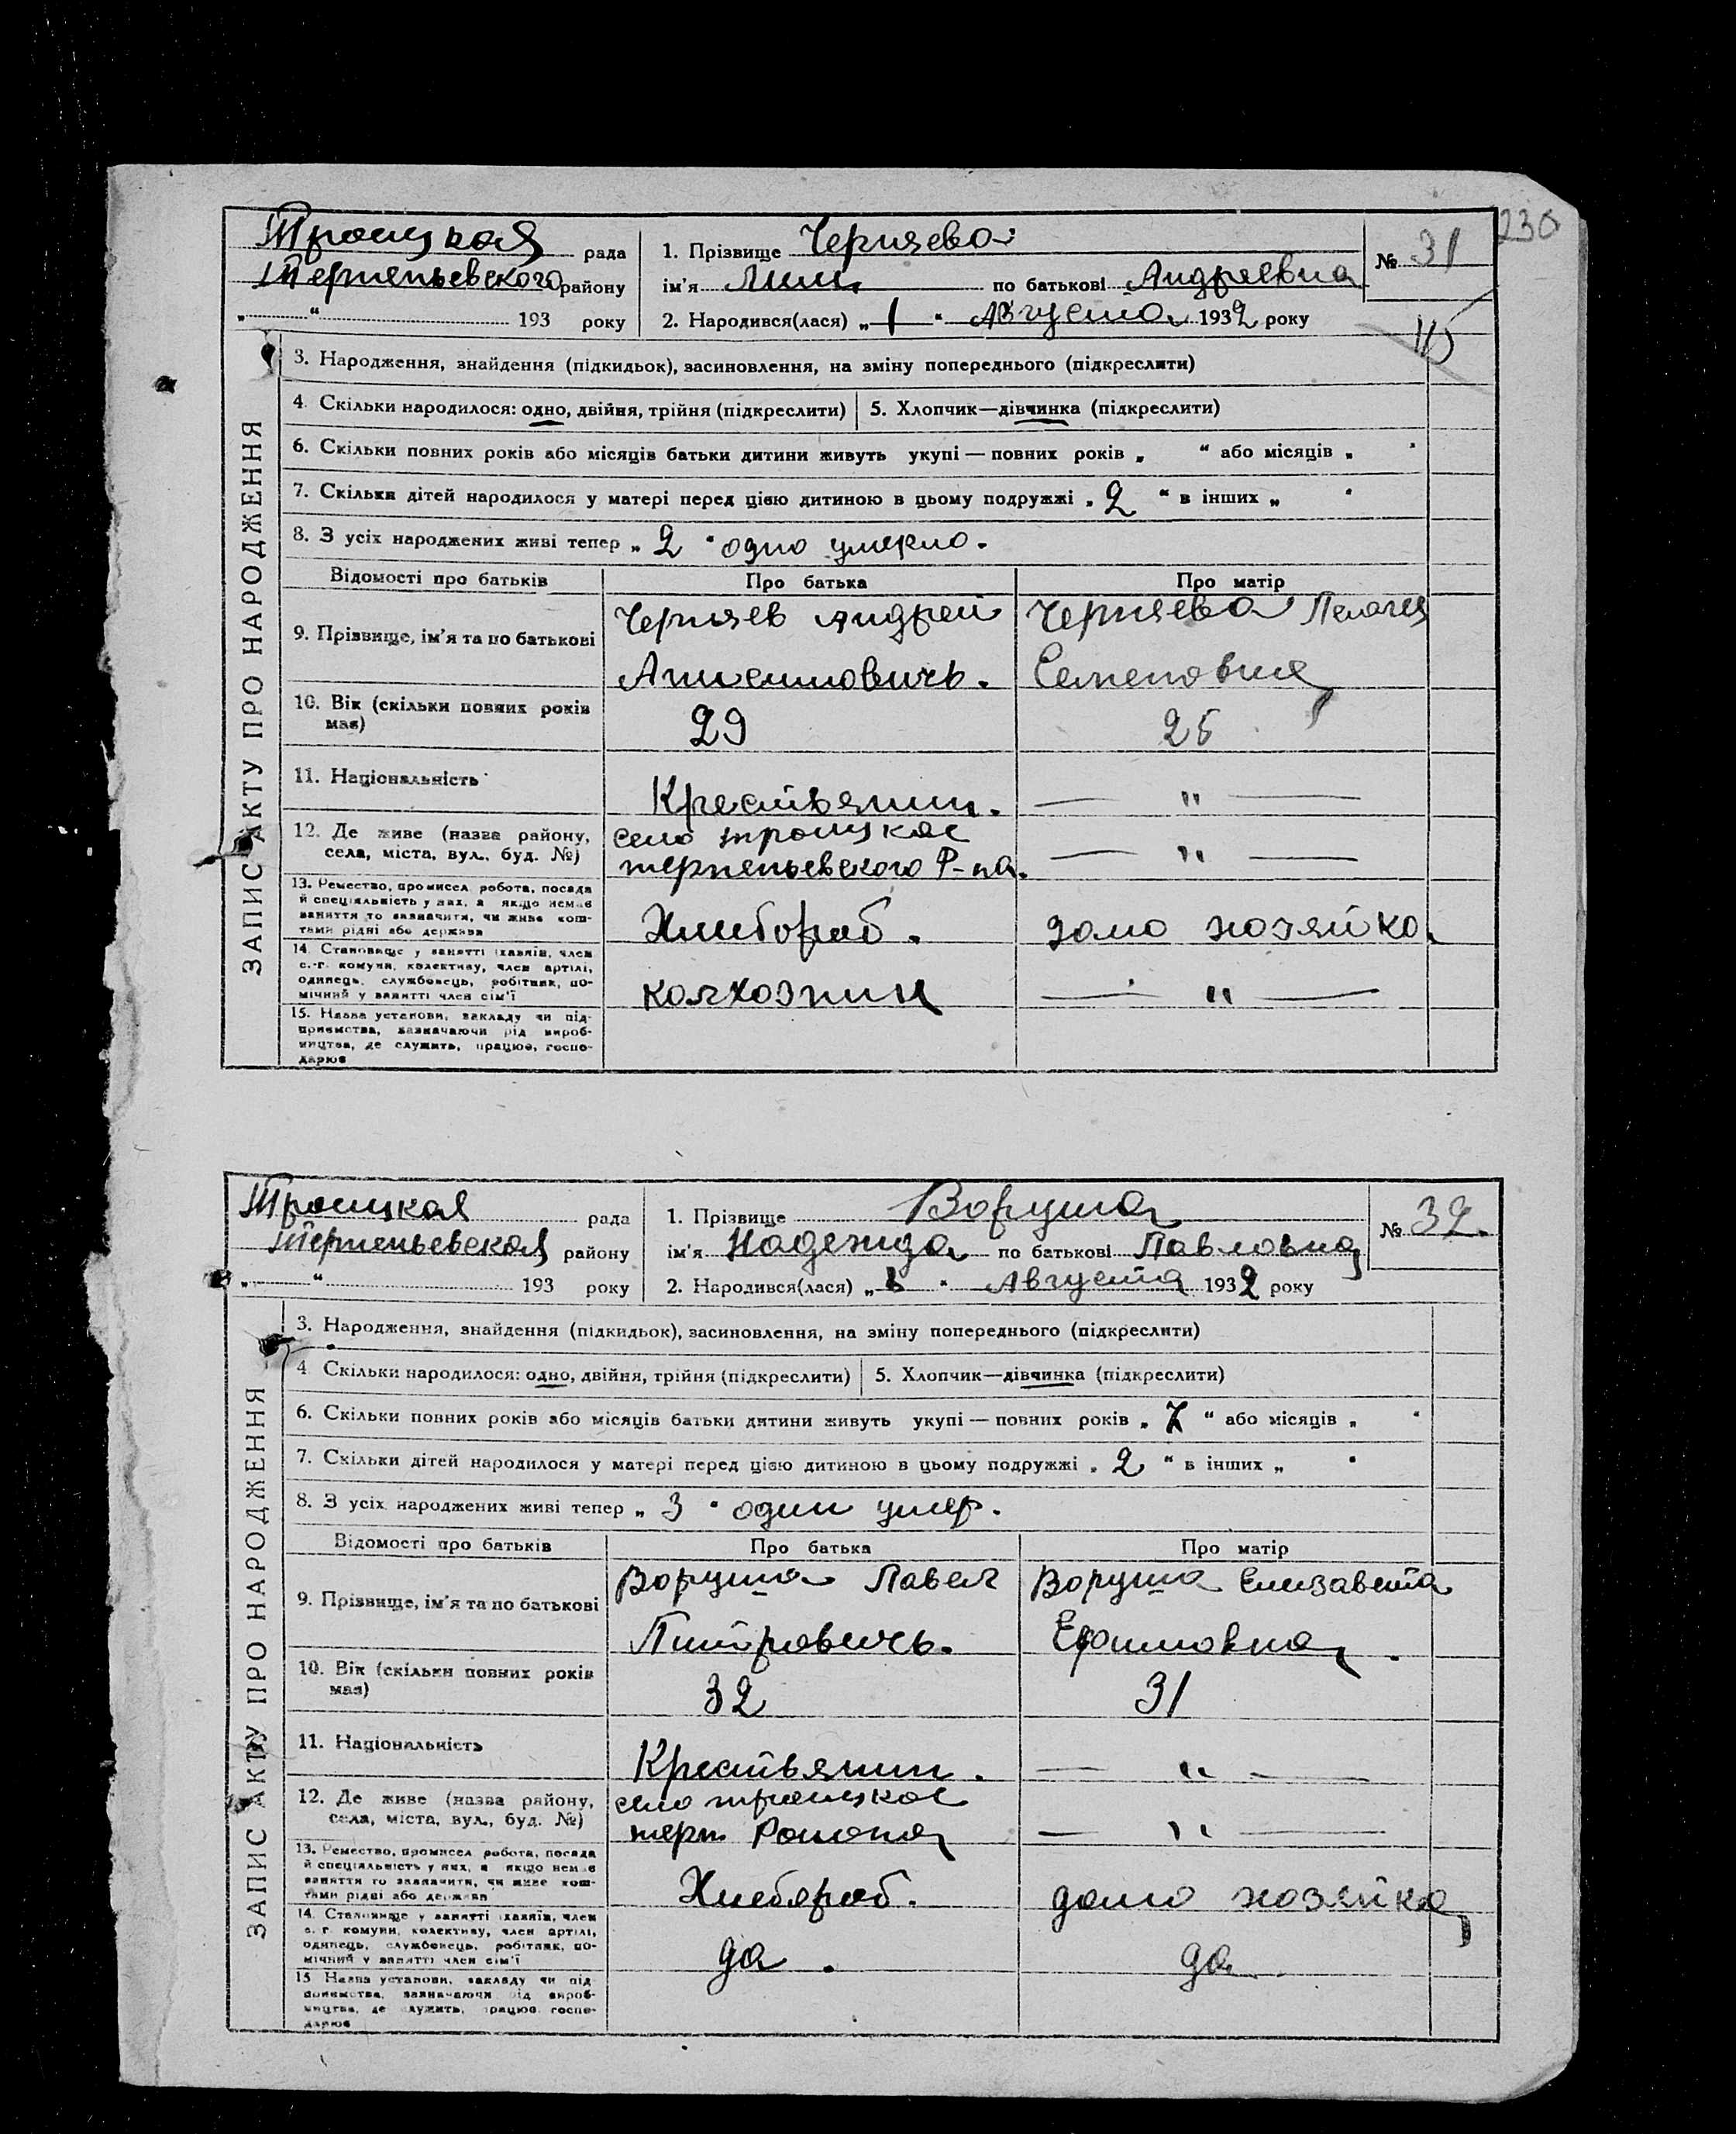 230
Троицкая рада
Терпеньевского району
„ “ 193 року
1. Прізвище Черняева
ім'я по батькові Андреевна
2. Народився(лася) „1“ Августа 1932 року
№ 31
ЗАПИС АКТУ ПРО НАРОДЖЕННЯ
3. Народження, знайдення (підкидьок), засиновлення, на зміну попереднього (підкреслити)
4. Скільки народилося: одно, двійня, трійня (підкреслити) 5. Хлопчик—дівчинка (підкреслити)
6. Скільки повних років або місяців батьки дитини живуть укупі — повних років „ “ або місяців „ “
7. Скільки дітей народилося у матері перед цією дитиною в цьому подружжі „2“ в інших „ “
8. З усіх народжених живі тепер „2“ одно умерло.
Відомості про батьків Про батька Про матір
9. Прізвище, ім'я та по батькові
Черняев Андрей
Черняева Пелагея
Семеновна
10. Вік (скільки повних років
має)
29
11. Національність
Крестьянин. — " —
12. Де живе (назва району,
села, міста, вул., буд. №)
село троицкое
терпеньевского Р-на. — " —
13. Ремество, промисел, робота, посада
й спеціяльність у них, а якщо немає
заняття то зазначити, чи живе кош-
тами рідні або держави
Хлебороб. домо хозяйка.
14. Становище у занятті (хазяїн, член
с.-г. комуни, колективу, член артілі,
одинець, службовець, робітник, по-
мічний у занятті член сім'ї
колхозник — " —
15. Назва установи, закладу чи під-
приємства, зазначаючи рід вироб-
ництва, де служить, працює, госпо-
дарює
Троицкая рада
Терпеньевская району
„ “ 193 року
1. Прізвище Воруша
ім'я Надежда по батькові Павловна
2. Народився(лася) „ “ Августа 1932 року
№ 32.
ЗАПИС АКТУ ПРО НАРОДЖЕННЯ
3. Народження, знайдення (підкидьок), засиновлення, на зміну попереднього (підкреслити)
4. Скільки народилося: одно, двійня, трійня (підкреслити) 5. Хлопчик—дівчинка (підкреслити)
6. Скільки повних років або місяців батьки дитини живуть укупі — повних років „7“ або місяців „ “
7. Скільки дітей народилося у матері перед цією дитиною в цьому подружжі „2“ в інших „ “
8. З усіх народжених живі тепер „3“ один умер.
Відомості про батьків Про батька Про матір
9. Прізвище, ім'я та по батькові
Воруша Павел
Питровичь.
Воруша Елизавета
Ефимовна.
10. Вік (скільки повних років
має)
32 31
11. Національність
Крестьянин. — " —
12. Де живе (назва району,
села, міста, вул., буд. №)
село троицкое
терп. Районa — " —
13. Ремество, промисел, робота, посада
й спеціяльність у них, а якщо немає
заняття то зазначити, чи живе кош-
тами рідні або держави
Хлебороб. домо хозяйка
14. Становище у занятті (хазяїн, член
с.-г. комуни, колективу, член артілі,
одинець, службовець, робітник, по-
мічний у занятті член сім'ї
да. да
15. Назва установи, закладу чи під-
приємства, зазначаючи рід вироб-
ництва, де служить, працює, госпо-
дарює